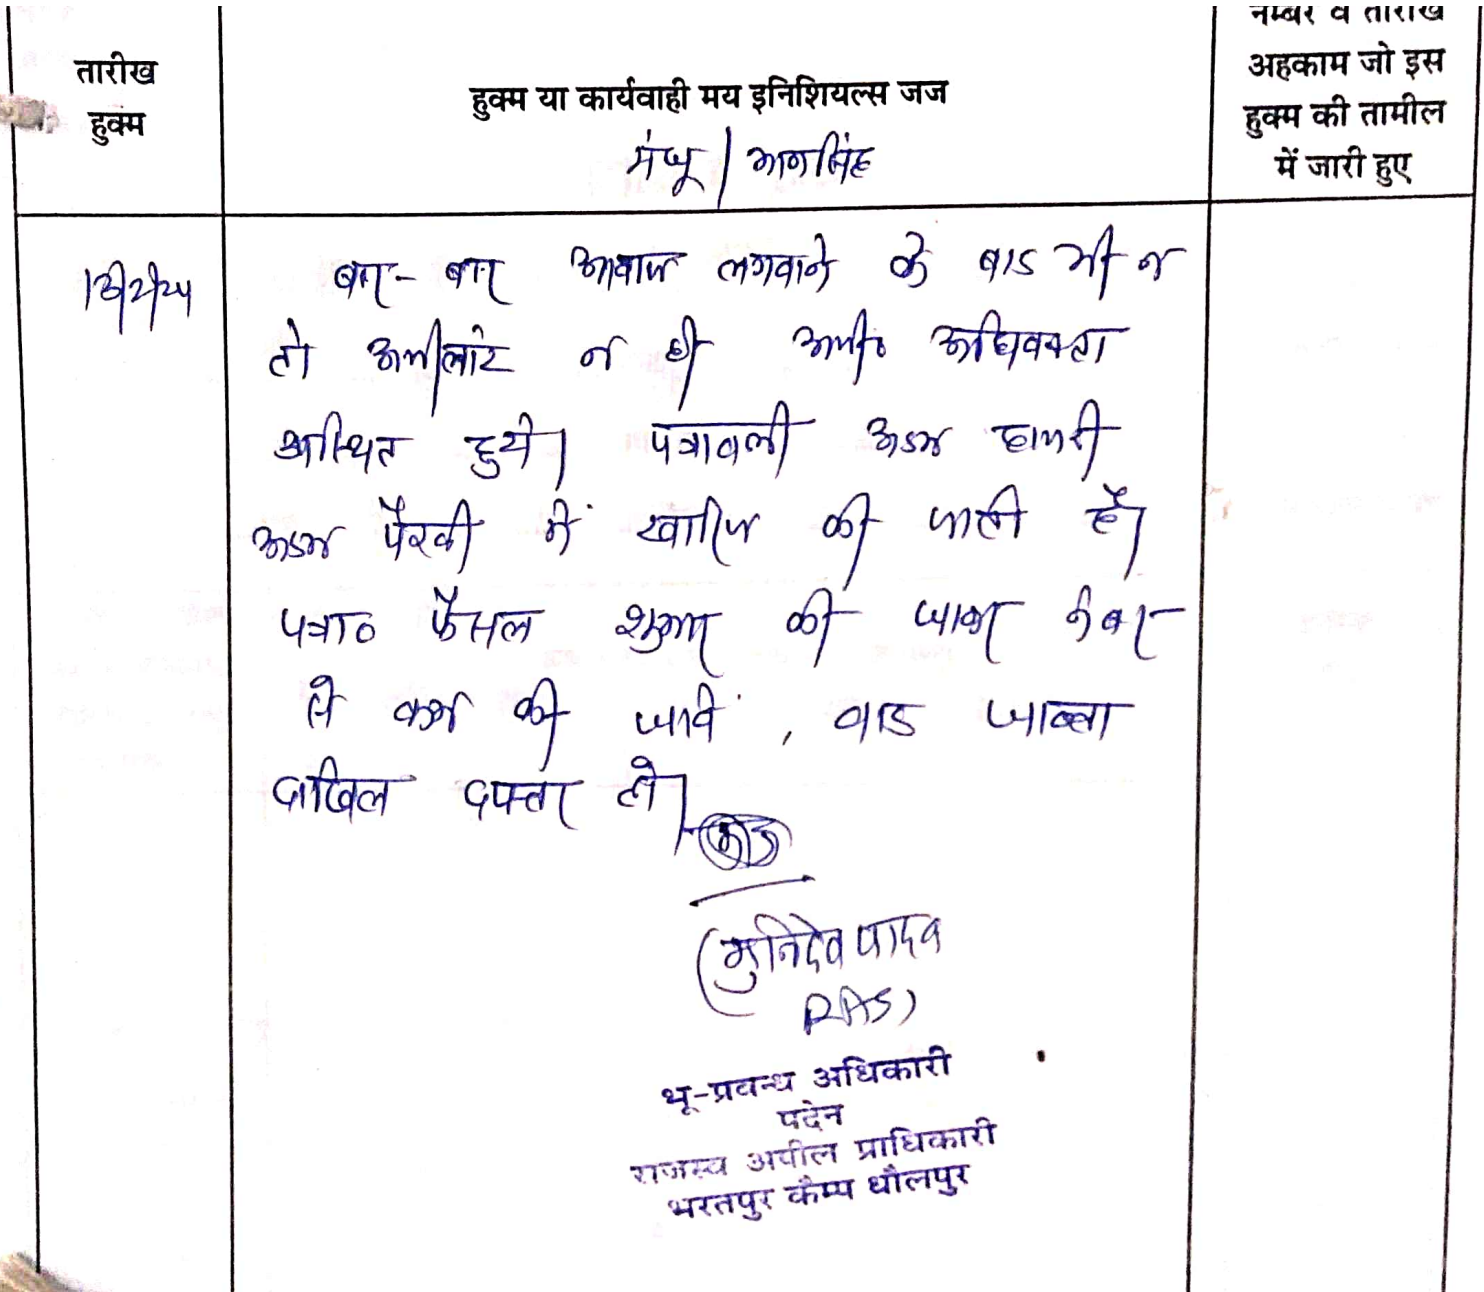 नम्बर व तारीख
तारीख
हुक्म
हुक्म या कार्यवाही मय इनिशियल्स जज
अहकाम जो इस
हुक्म की तामील
में जारी हुए
मंजू /
बार-बार आवाज लगवाने के बाद भी न
तो अपीलांट न ही अपी० अधिवक्ता
उपस्थित हुये। पत्रावली अदम हाजरी
अदम पैरवी में खारिज की जाती है।
पत्रा० फैसल शुमार की जाकर नंबर
से कम की जावें, बाद जाब्ता
दाखिल दफ्तर हो।
(मुनिदेव यादव
RAS)
भू-प्रवन्ध अधिकारी
पदेन
राजस्व अपील प्राधिकारी
भरतपुर कैम्प धौलपुर